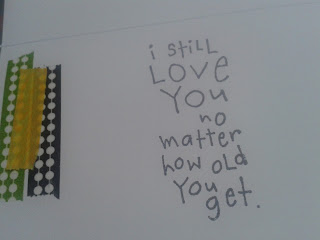 i still
LOVE
YOU
no
matter
how old
You
get.